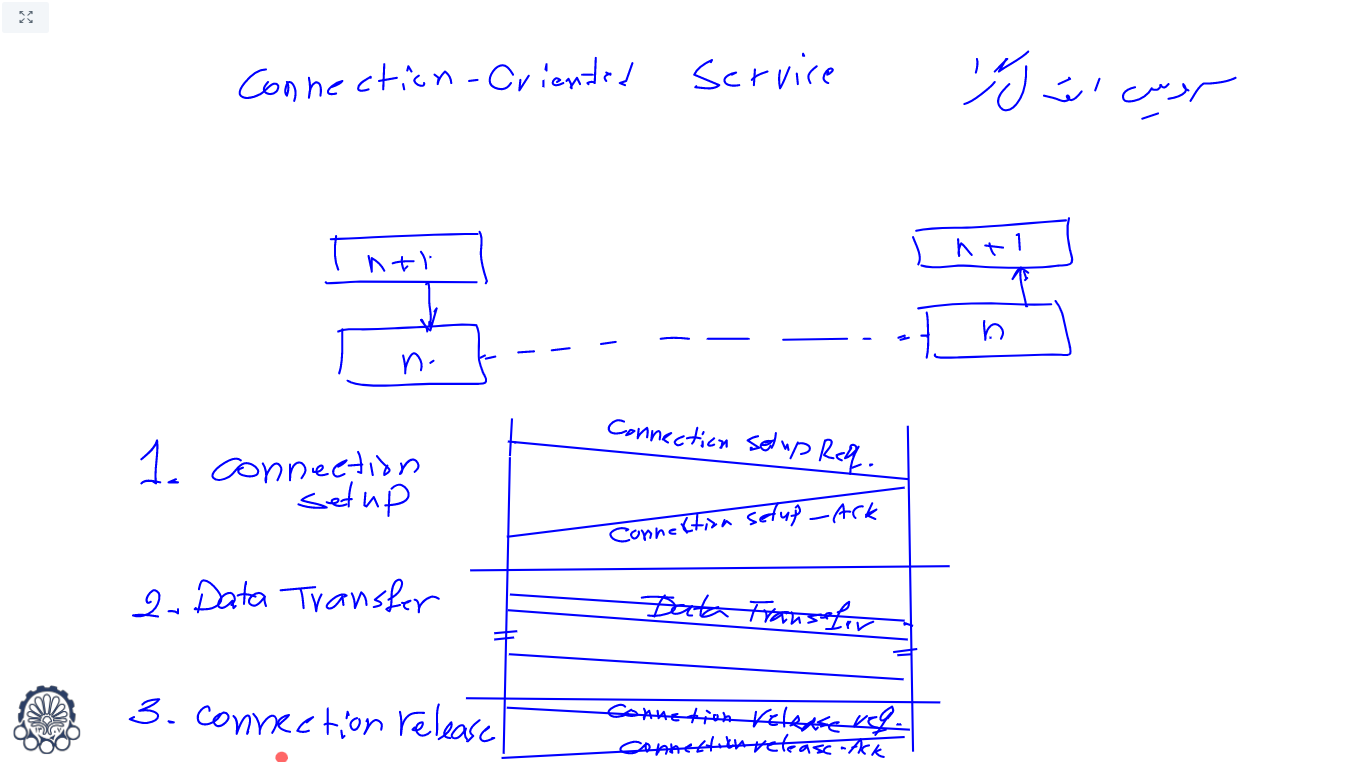 Connection-Oriented Service سرویس اتصال گرا
n+1
n+1
n
n
1. Connection setup
Connection setup Req.
Connection setup - Ack
2. Data Transfer
Data Transfer
3. Connection release
Connection release req.
Connection release - Ack